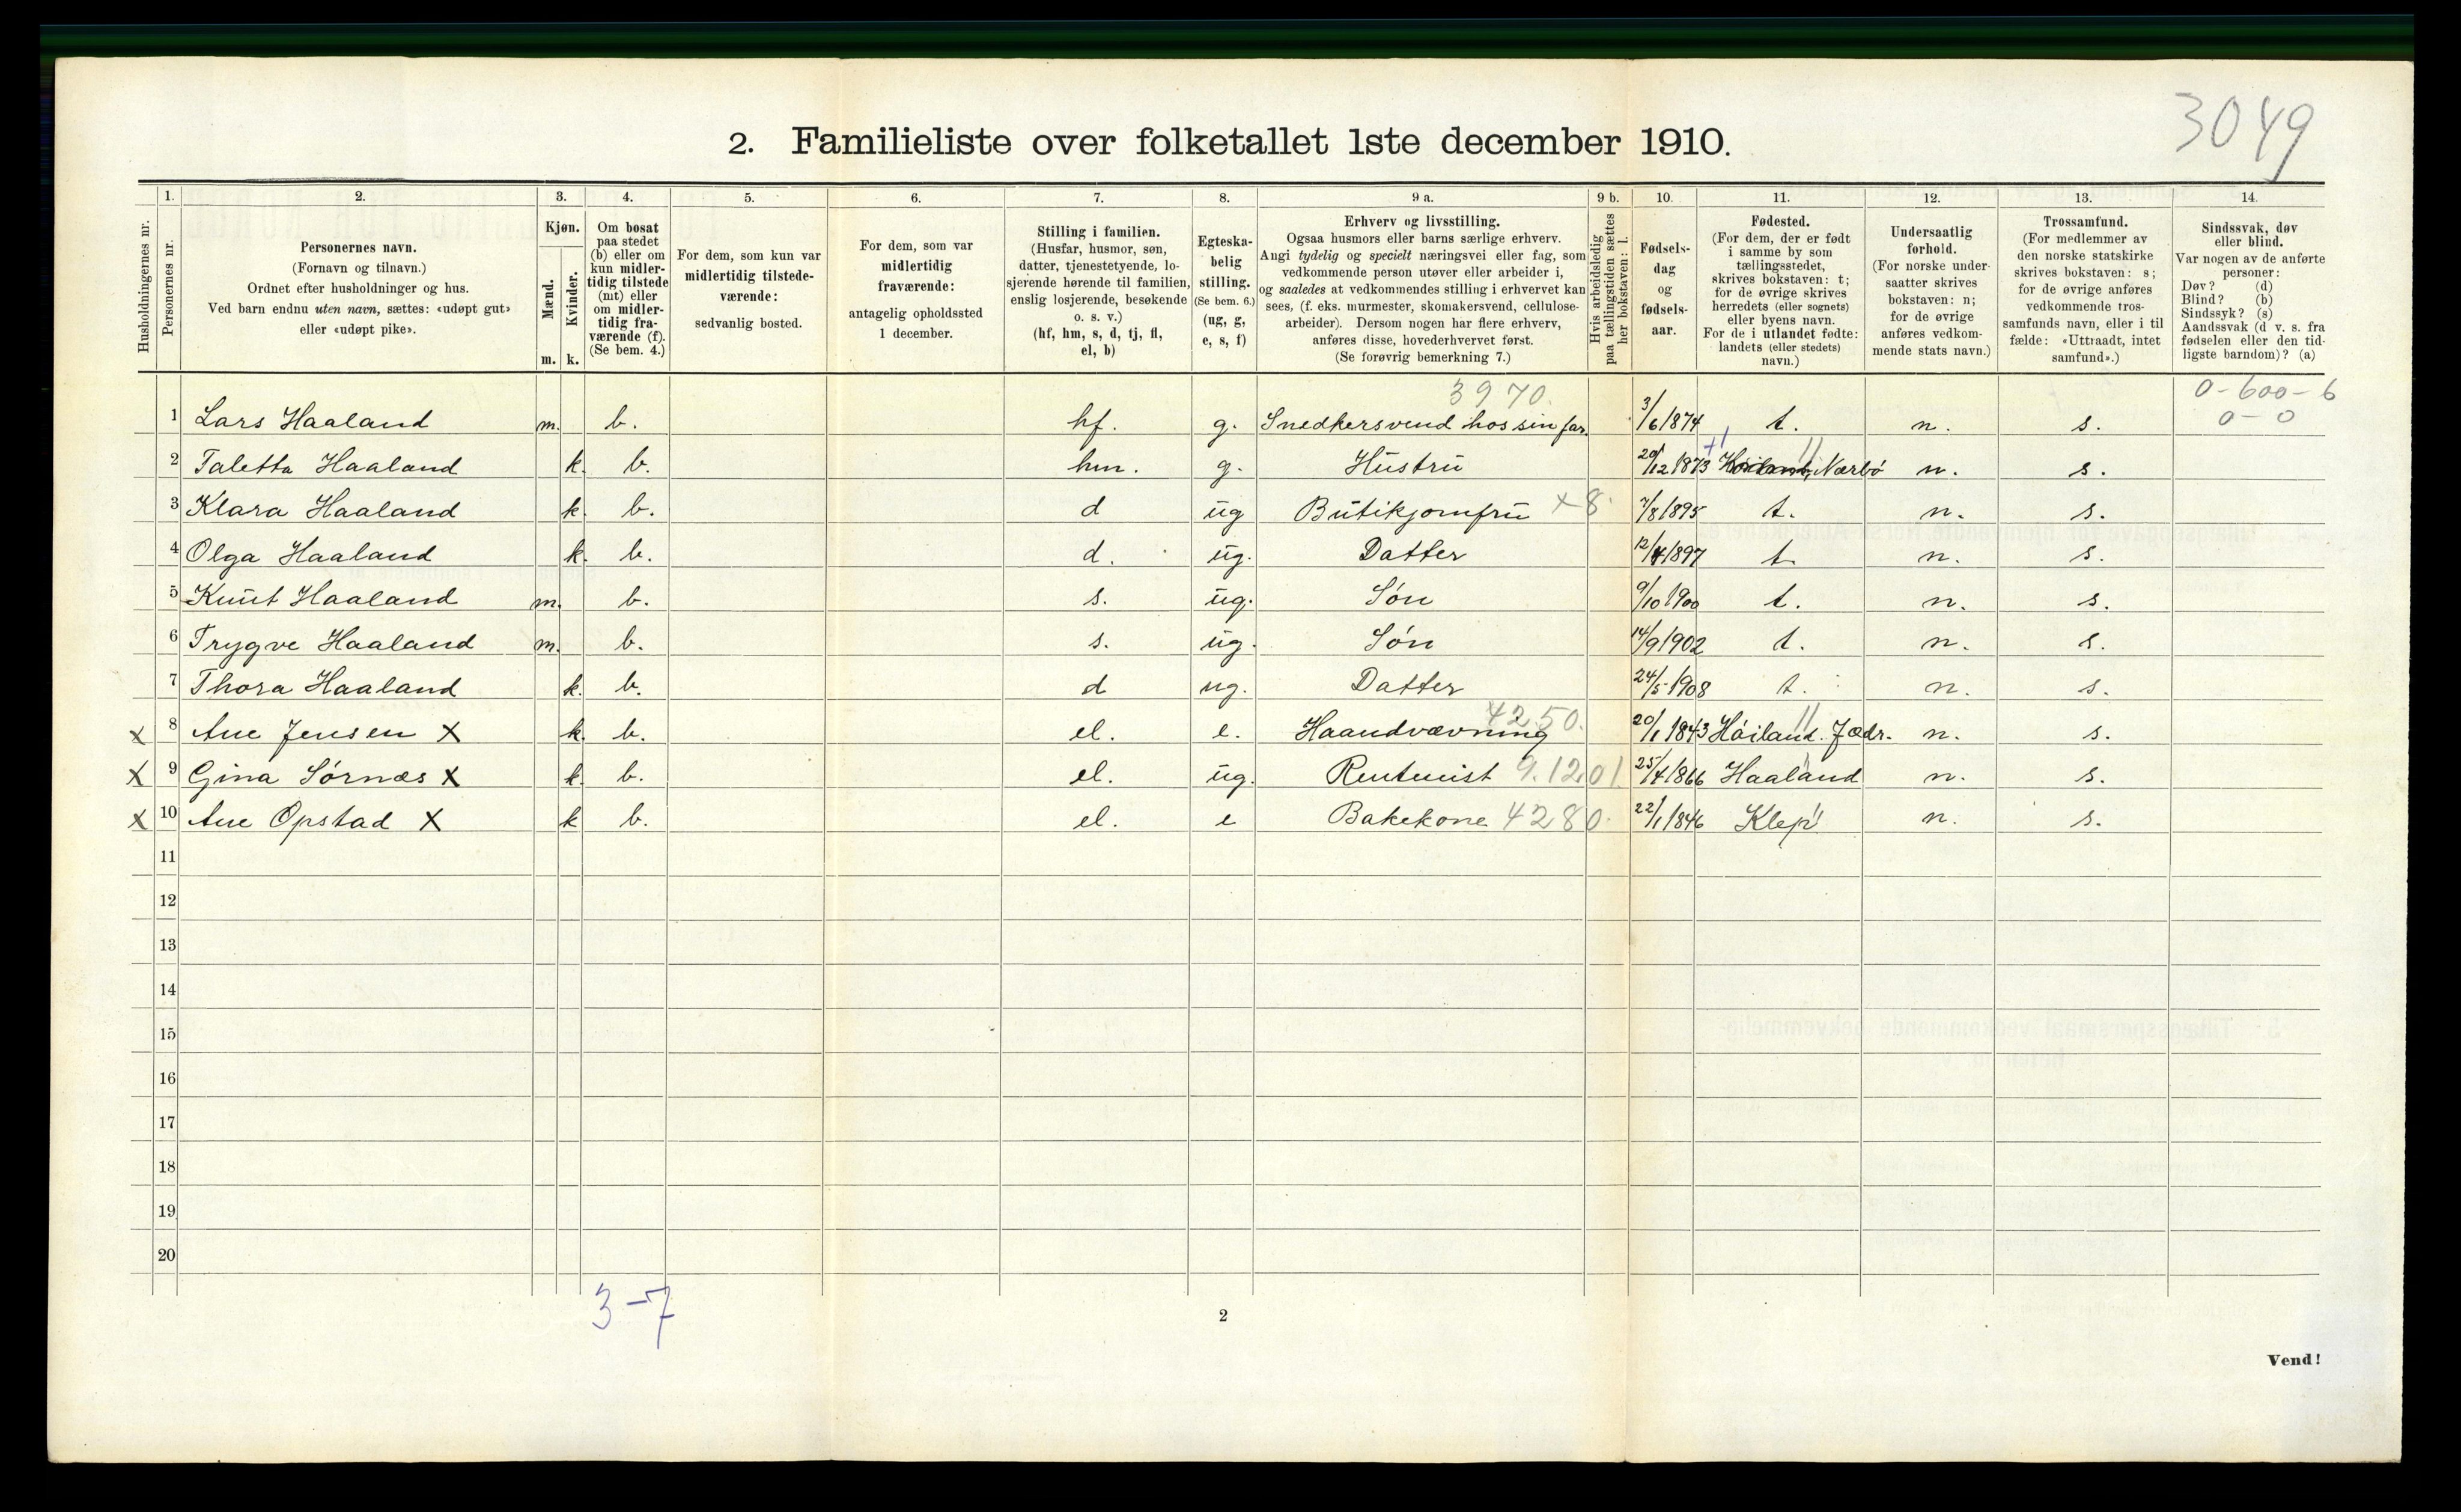 3049
2. Familieliste over folketallet 1ste december 1910.
1. 2. 3. 4. 5. 6. 7. 8. 9 a. 9 b. 10. 11. 12. 13. 14.
Husholdningernes nr.
Personernes nr.
Personernes navn.
(Fornavn og tilnavn.)
Ordnet efter husholdninger og hus.
Ved barn endnu uten navn, sættes: «udøpt gut»
eller «udøpt pike».
Kjøn.
Mænd.
Kvinder.
m. k.
Om bosat
paa stedet
(b) eller om
kun midler-
tidig tilstede
(mt) eller
om midler-
tidig fra-
værende (f).
(Se bem. 4.)
For dem, som kun var
midlertidig tilstede-
værende:
sedvanlig bosted.
For dem, som var
midlertidig
fraværende:
antagelig opholdssted
1 december.
Stilling i familien.
(Husfar, husmor, søn,
datter, tjenestetyende, lo-
sjerende hørende til familien,
enslig losjerende, besøkende
o. s. v.)
(hf, hm, s, d, tj, fl,
el, b)
Egteska-
belig
stilling.
(Se bem. 6.)
(ug, g,
e, s, f)
Erhverv og livsstilling.
Ogsaa husmors eller barns særlige erhverv.
Angi tydelig og specielt næringsvei eller fag, som
vedkommende person utøver eller arbeider i,
og saaledes at vedkommendes stilling i erhvervet kan
sees, (f. eks. murmester, skomakersvend, cellulose-
arbeider). Dersom nogen har flere erhverv,
anføres disse, hovederhvervet først.
(Se forøvrig bemerkning 7.)
Hvis arbeidsledig
paa tællingstiden sættes
her bokstaven: l.
Fødsels-
dag
og
fødsels-
aar.
Fødested.
(For dem, der er født
i samme by som
tællingsstedet,
skrives bokstaven: t;
for de øvrige skrives
herredets (eller sognets)
eller byens navn.
For de i utlandet fødte:
landets (eller stedets)
navn.)
Undersaatlig
forhold.
(For norske under-
saatter skrives
bokstaven: n;
for de øvrige
anføres vedkom-
mende stats navn.)
Trossamfund.
(For medlemmer av
den norske statskirke
skrives bokstaven: s;
for de øvrige anføres
vedkommende tros-
samfunds navn, eller i til
fælde: «Uttraadt, intet
samfund».)
Sindssvak, døv
eller blind.
Var nogen av de anførte
personer:
Døv? (d)
Blind? (b)
Sindssyk? (s)
Aandssvak (d v. s. fra
fødselen eller den tid-
ligste barndom)? (a)
3970. 0-600-6
1 Lars Haaland m. b. hf. g. Snedkersvend hos sin far. 3/6 1874 t. n. s. 0-0
2 Taletta Haaland k. b. hm. g. Hustru 20/12 1873 Nærbö n. s.
3 Klara Haaland k. b. d ug Butikjomfru x8. 7/8 1895 t. n. s.
4 Olga Haaland k. b. d. ug. Datter 12/4 1897 t. n. s.
5 Knut Haaland m. b. s. ug. Søn 9/10 1900 t. n. s.
6 Trygve Haaland m. b. s. ug. Søn 14/9 1902 t. n. s.
7 Thora Haaland k. b. d ug. Datter 24/5 1908 t. n. s.
4250.
x 8 Ane Jensen X k. b. el. e. Haandvævning 20/1 1843 Höiland. Jædr. n. s.
X 9 Gina Sörnæs X k. b. el. ug. Rentenist 9.1201. 25/4 1866 Haaland n. s.
X 10 Ane Opstad X k b. el. e Bakekone 4280. 22/1 1846 Klep n. s.
11
12
13
14
15
16
17
18
19
20
3-7
2
Vend!